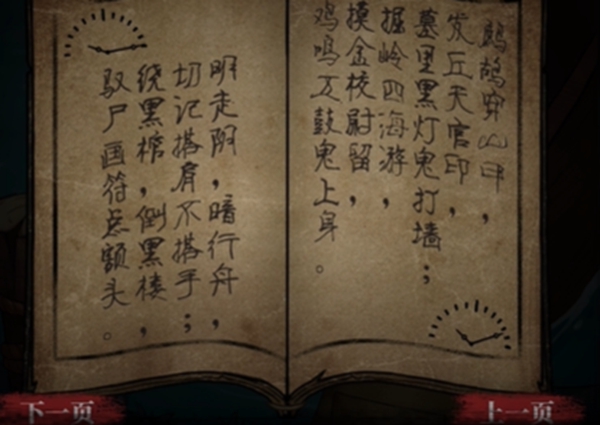 鹧鸪穿山甲，
发丘天官印，
墓里黑灯鬼打墙；
搬岭四海游，
摸金校尉留，
鸡鸣五鼓鬼上身。
明走阴，暗行舟，
切记搭肩不搭手；
绕黑棺，倒黑楼，
驭尸画符点额头。
下一页
上一页